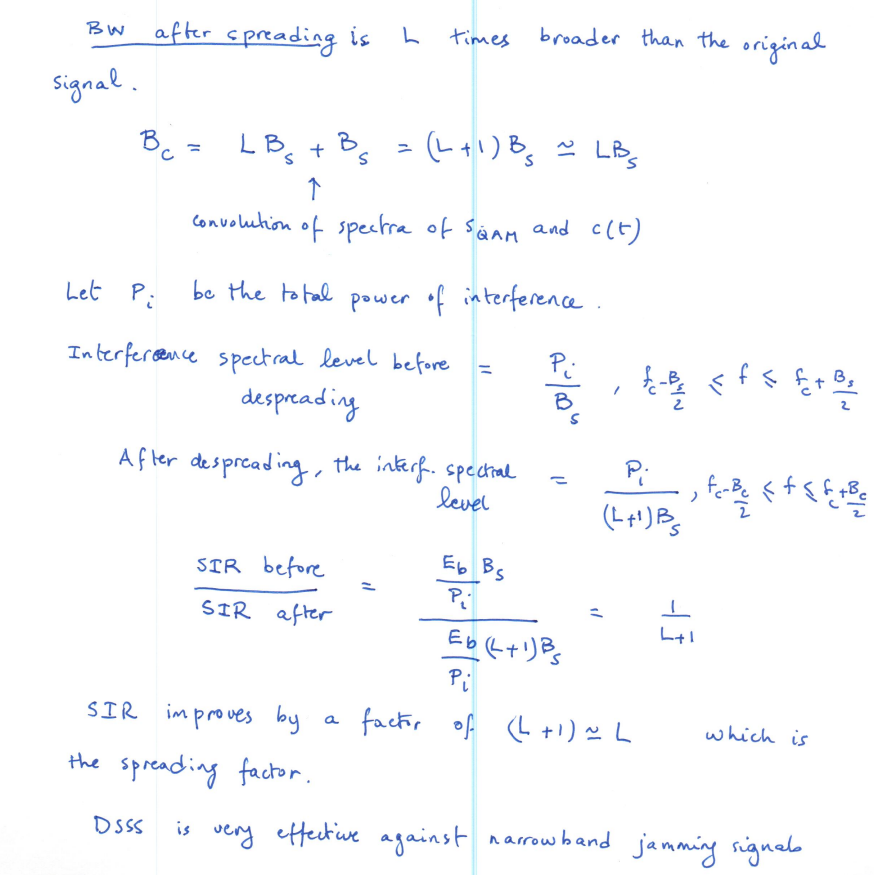 BW after spreading is L times broader than the original
signal.
B_c = L B_s + B_s = (L+1) B_s ≃ LB_s
↑
convolution of spectra of s_QAM and c(t)
Let P_i be the total power of interference.
Interference spectral level before despreading = P_i / B_s , f_c - B_s/2 ≤ f ≤ f_c + B_s/2
After despreading, the interf. spectral level = P_i / ((L+1) B_s) , f_c - B_c/2 ≤ f ≤ f_c + B_c/2
SIR before / SIR after = (E_b B_s / P_i) / (E_b (L+1) B_s / P_i) = 1 / (L+1)
SIR improves by a factor of (L+1) ≃ L which is
the spreading factor.
DSSS is very effective against narrowband jamming signals